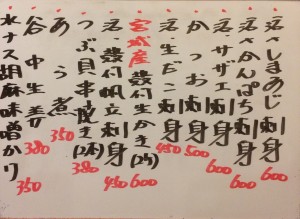 活しまあじ刺身 600
活かんぱち刺身 600
活サザエ刺身 600
かつお刺身 500
活生だこ刺身 450
宮城産殻付生かき(2ヶ) 600
活殻付帆立刺身 450
つぶ貝串焼き(2本) 380
あら煮 350
谷中生姜 380
水ナス胡麻味噌かけ 350